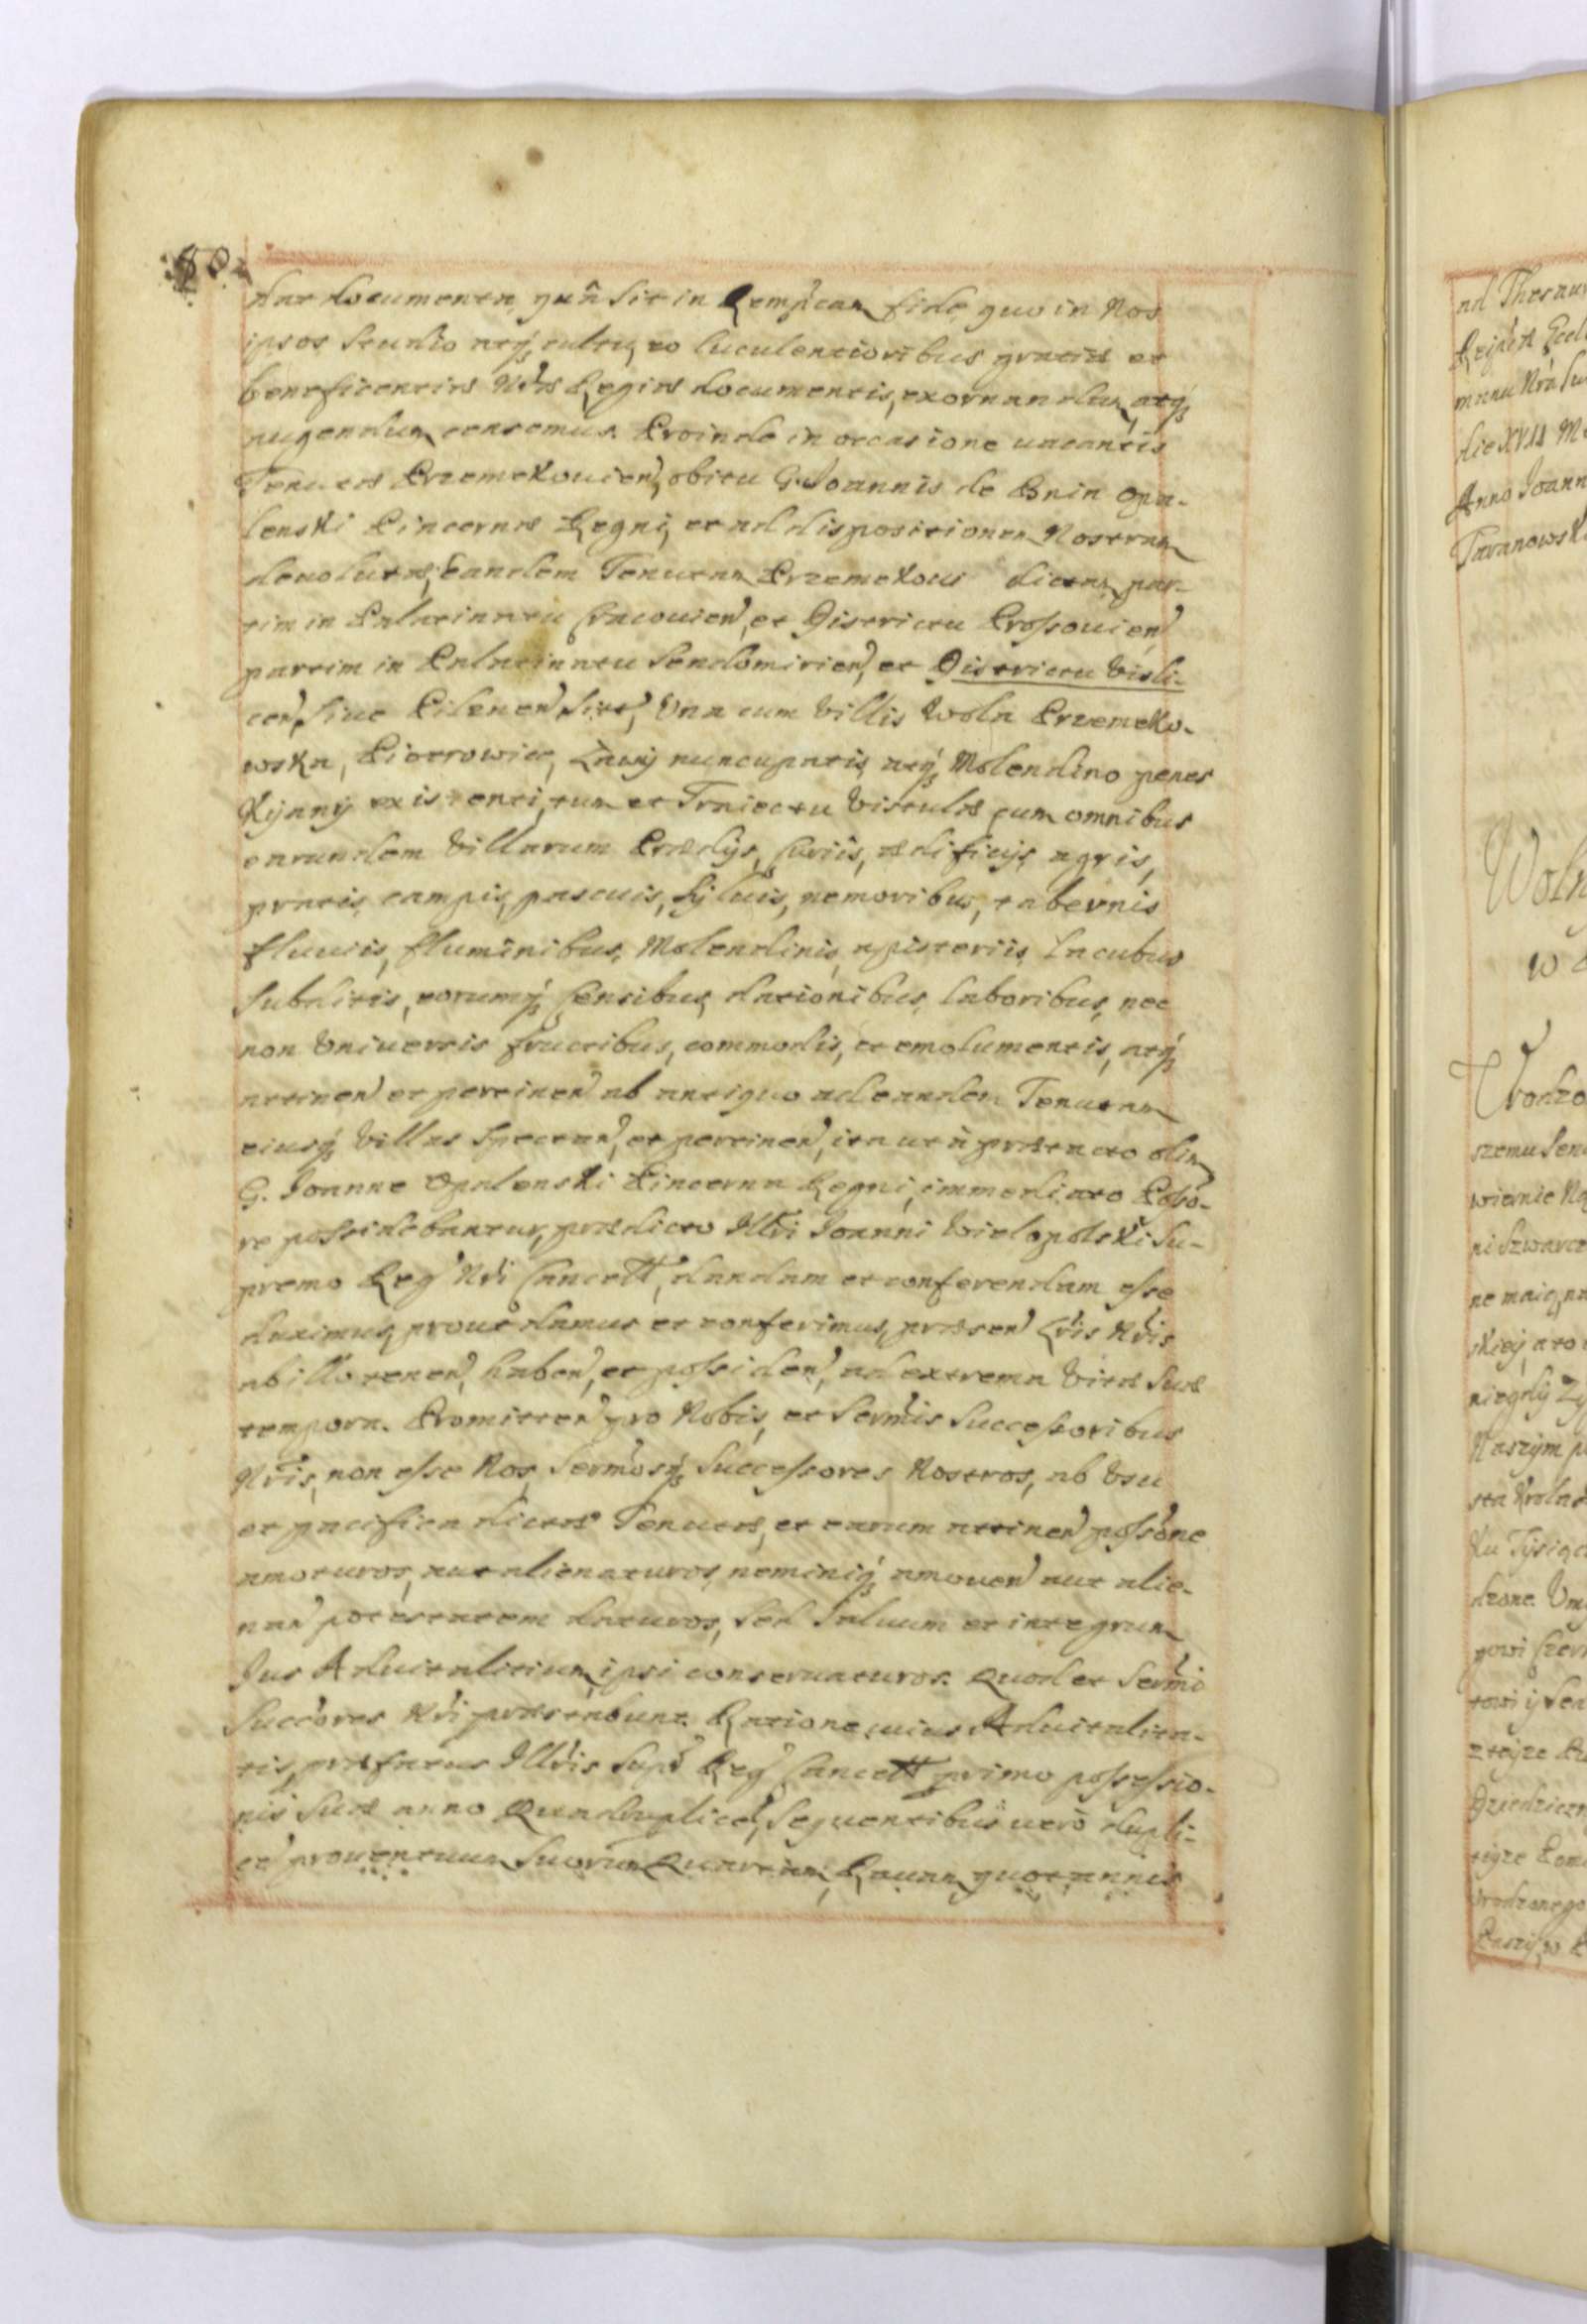 60
dat documenta, quâ sit in Rempcam fide, quo in Nos
ipsos studio atq; cultu, eo luculentioribus gratiæ et
beneficentiæ Nræ Regiæ documentis, exornandum, atq;
augendum censemus. Proinde in occasione vacantis
Tenutæ Przemekovien, obitu G. Joannis de Bnin Opa-
lenski Pincernæ Regni, et ad dispositionem Nostram
devolutæ, Eandem Tenutam Przemekow dictam, par-
tim in Palatinatu Cracovien, et Districtu Prossovien
partim in Palatinatu Sendomirien, et Districtu Visli-
cen, sive Pilznen sitæ, Una cum Villis Wola Przemeko-
wska, Piotrowice, Ławy nuncupatis, atq; Molendino penes
Kijany existenti, tum et Traiectu Vistulæ cum omnibus
earundem Villarum Prædijs, Curiis, ædificijs, agris,
pratis, campis, pascuis, Sylvis, nemoribus, tabernis
fluviis, fluminibus, Molendinis, apisteriis, Lacubus
Subditis, eorumq; Censibus, dationibus, laboribus, nec
non Universis fructibus, commodis, et emolumentis, atq;
attinen et pertinen ab antiquo ad eandem Tenutam
eiusq; Villas spectan, et pertinen, ita ut à prætacto olim
G. Joanne Opalenski Pincerna Regni, immediato Posso-
re possidebantur, prædicto Illri Joanni Wielopolski Su-
premo Reg Nri Cancell, dandam et conferendam esse
duximus, prout damus et conferimus, præsen Lris Nris
ab illo tenen, haben, et possiden, ad extrema Vitæ Suæ
tempora. Promitten pro Nobis, et Sermis Successoribus
Nris, non esse Nos, Sermosq; Successores Nostros, ab Usu
et pacifica dictæ Tenutæ, et earum attinen possone
amoturos, aut alienaturos, neminiq; amoven aut alie-
nan potestatem daturos, Sed Salvum et integrum
Jus Advitalitium ipsi conservaturos. Quod et Sermi
Succores Nri præstabunt. Ratione cuius Advitalita-
tis, præfatus Illris Supr Reg Cancell primo possessio-
nis Suæ anno Quadruplice, Sequentibus vero dupli-
ce proventuum Suorum Quartam, Ravam quotannis
ad Thesau
manu Nra Su
die XVII M
Anno Joann
Taranowsk
Wol
w
Vrodzo
szemu Sen
wiernie Na
ni Szwarce
ne maią na
skiey, ato
niegdy Zy
Naszym p
sta Krola
Ku Tysiąc
dzone. Um